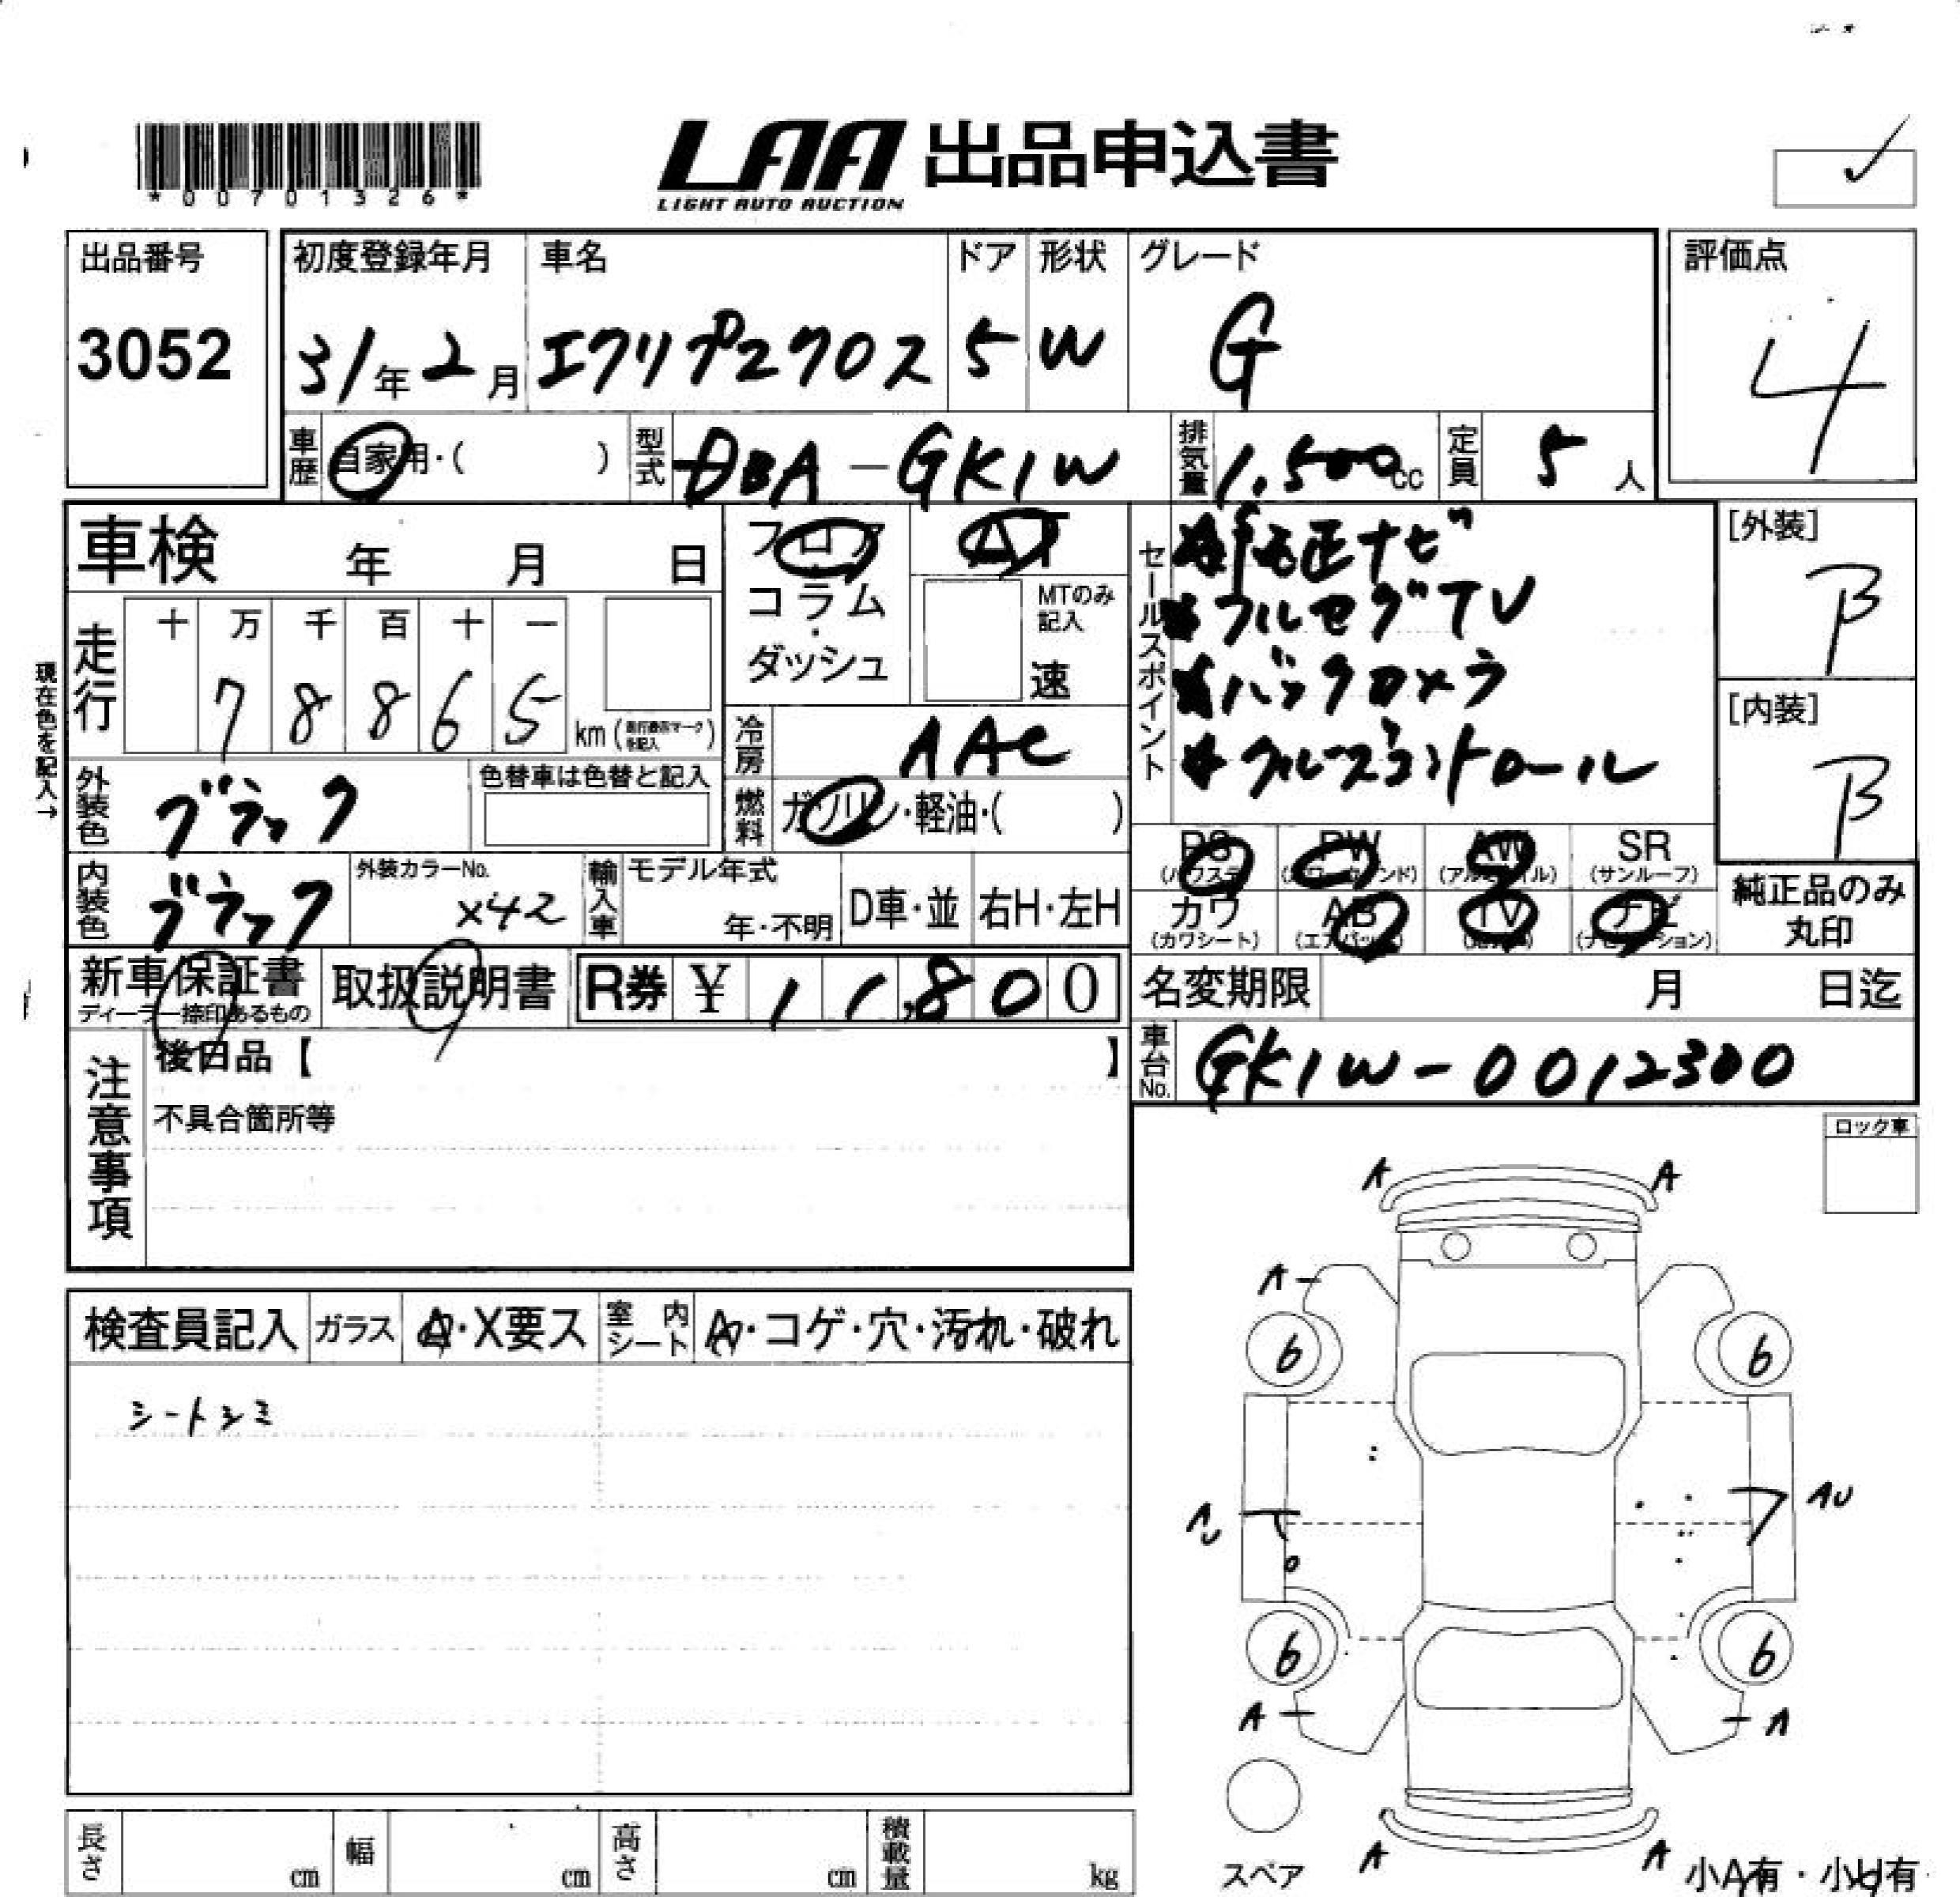 *00701326*
LAA 出品申込書
LIGHT AUTO AUCTION
出品番号 初度登録年月 車名 ドア 形状 グレード 評価点
3052 31年2月 エクリプスクロス 5 W G 4
車歴 自家用・( ) 型式 DBA-GK1W 排気量 1.500cc 定員 5人
車検 年 月 日
フロア・コラム・ダッシュ AT
MTのみ記入 速
セールスポイント
純正ナビ
フルセグTV
バックカメラ
クルーズコントロール
[外装] B
[内装] B
現在色を記入→
走行 十 万 千 百 十 一
7 8 8 6 5 km
冷房 AAC
外装色 ブラック 色替車は色替と記入
燃料 ガソリン・軽油・( )
PS PW AW SR
(パワステ) (パワーウインド) (アルミホイル) (サンルーフ)
内装色 ブラック 外装カラーNo. X42 輸入車 モデル年式 年・不明 D車・並 右H・左H
カワ AB TV ナビ
(カワシート) (エアバック) (ナビゲーション)
純正品のみ丸印
新車保証書 取扱説明書 R券 ¥ 11,800
ディーラー捺印あるもの
名変期限 月 日迄
車台No. GK1W-0012300
注意事項
後日品【 】
不具合箇所等
ロック車
検査員記入 ガラス A・X要ス 室内シート A・コゲ・穴・汚れ・破れ
シートシミ
A A
A
6 6
AU AU
6 6
A A
スペア
A A
小A有・小U有
長さ cm 幅 cm 高さ cm 積載量 kg